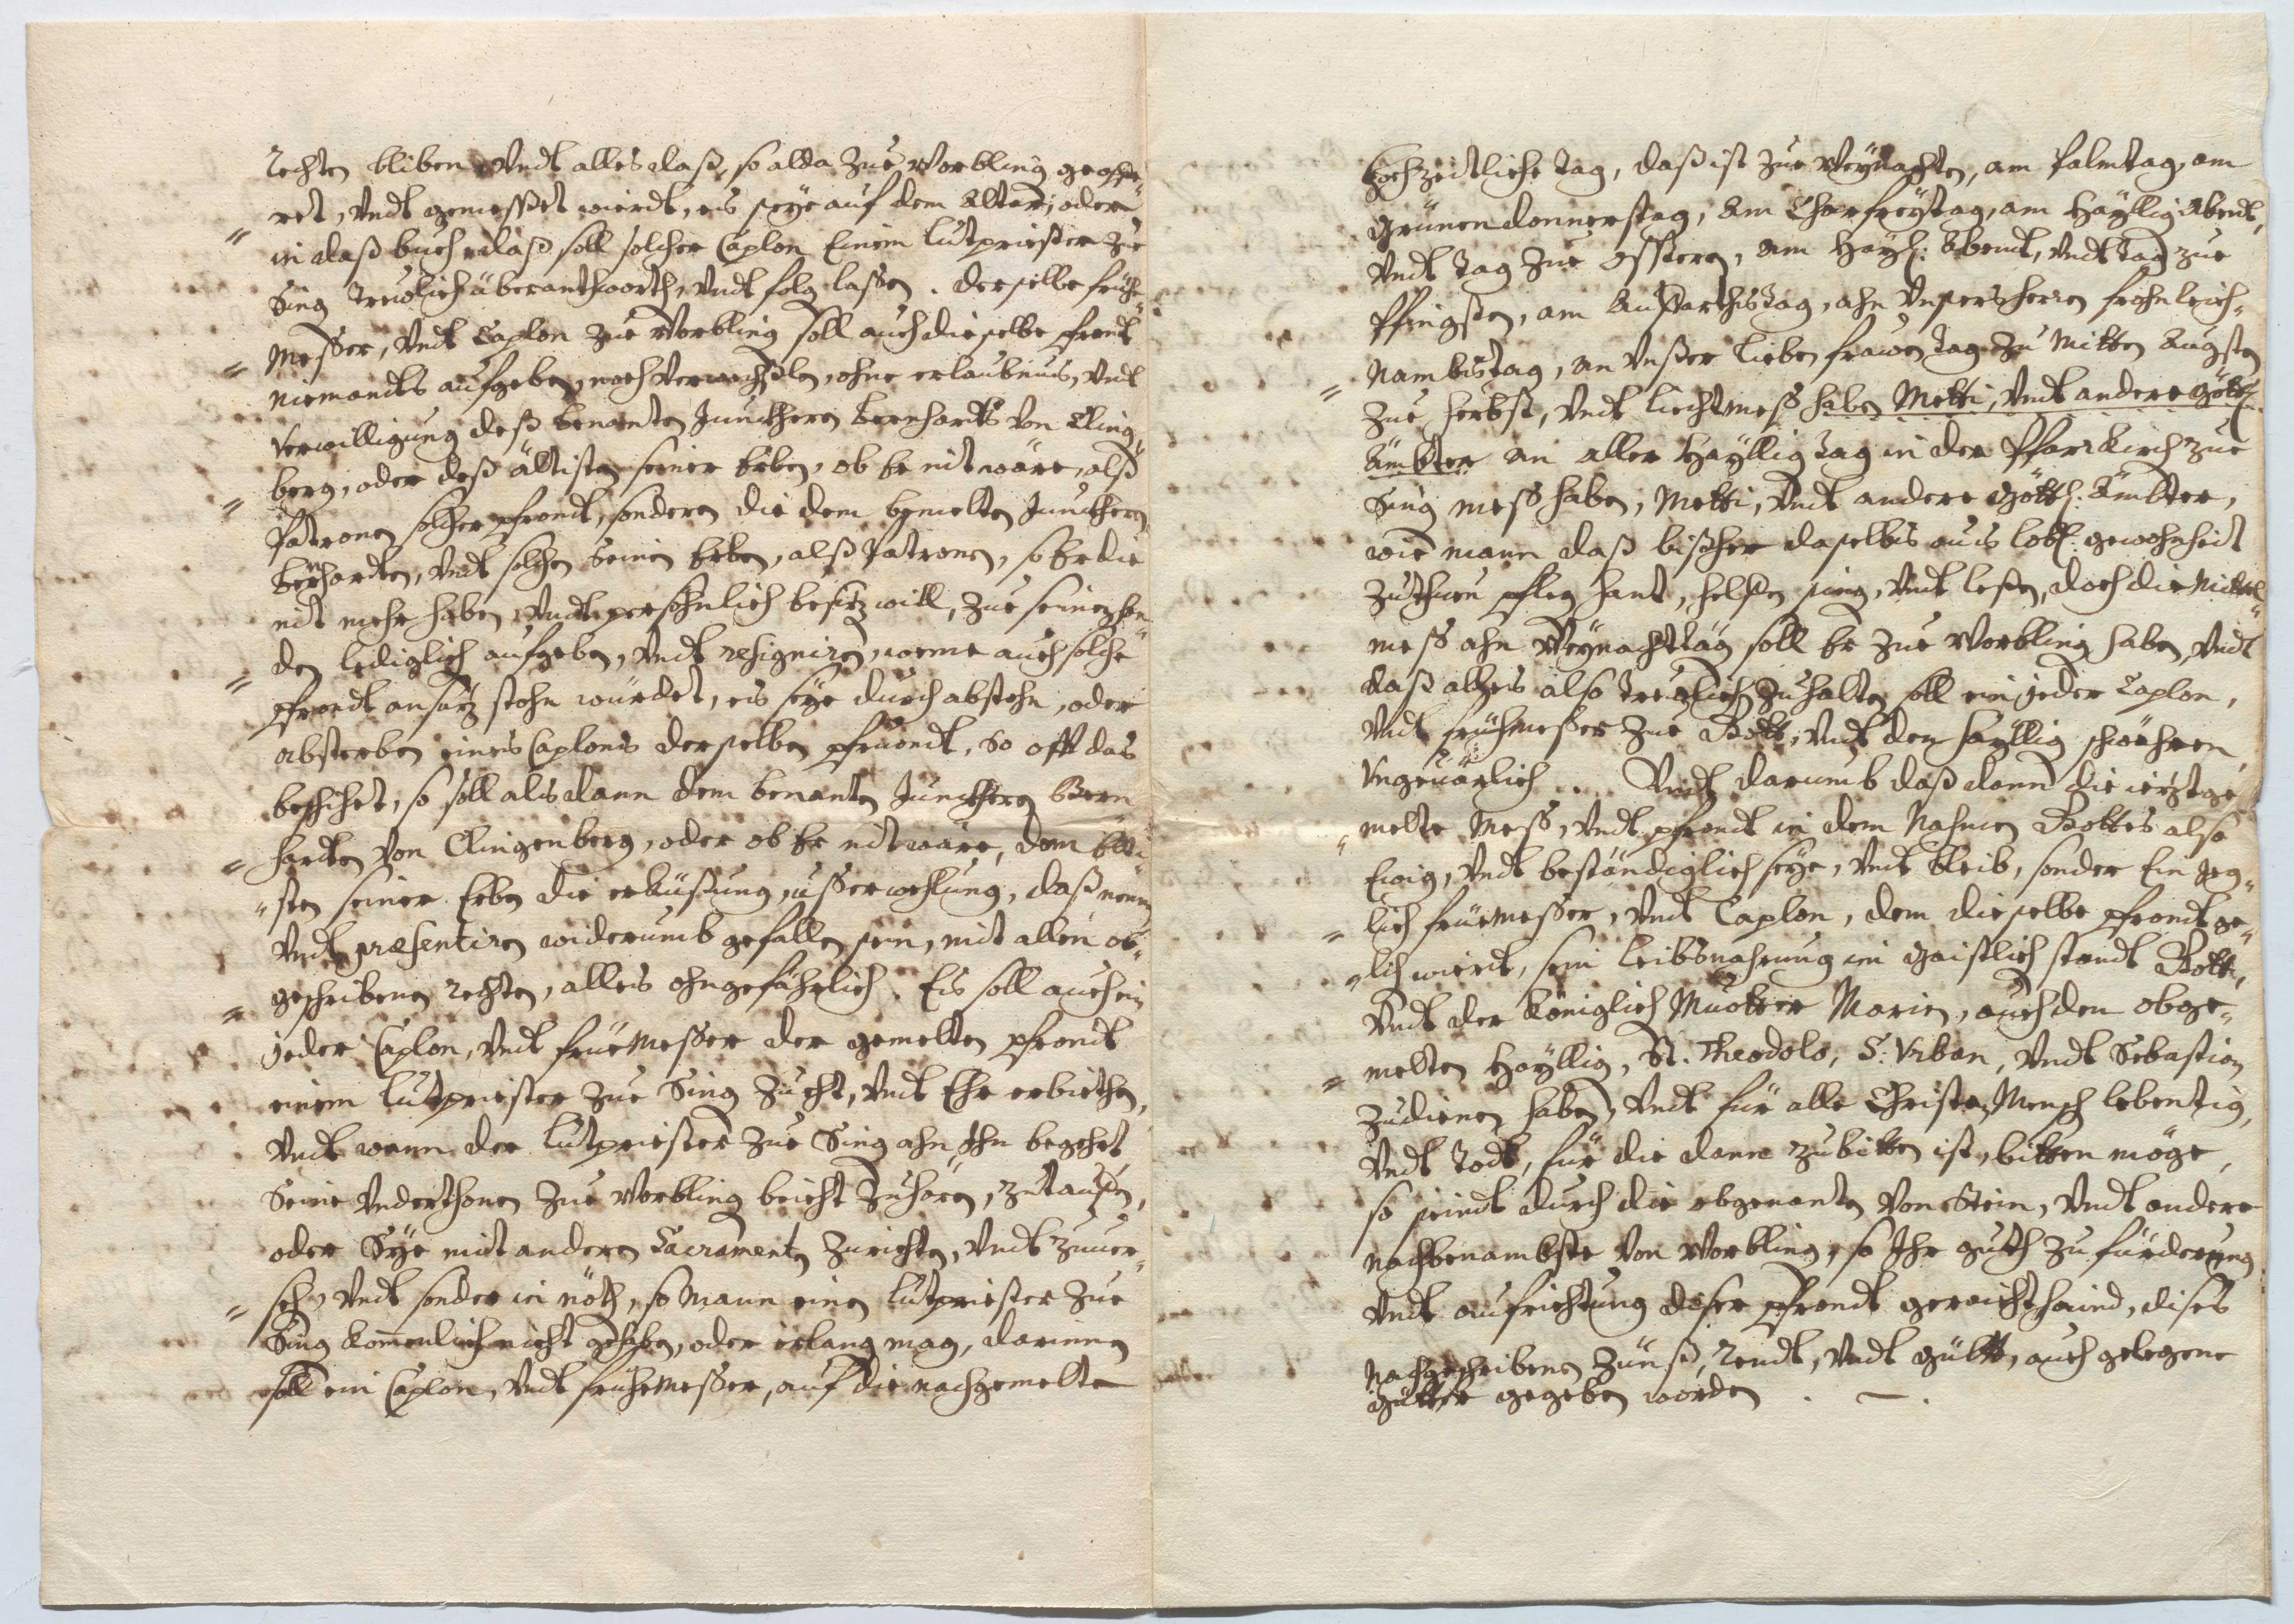 rechten bliben, Vndt alles daß, so alda zue Worbling geopffe
ret, Vndt gemesset wierdt, es seye auf dem Altar, oder
in daß buch, daß soll solcher Caplon Einem Lütpriester zue
Sing treẅlich überanthworth, Vndt folg lassen. Derselbe frühe
Messer, Vndt Caplon zue Worbling soll auch dieselbe pfrondt
niemandts aufgeben, noch Verwechßlen, ohne erlaubnus, Vndt
Verwilligung deß benanten Junckheren Bernhardts Von Cling
berg, oder deß ältisten seiner Erben, ob Er nit wäre, alß
Patronen solcher pfrondt, sonderen die dem bemelten Junckheren
Bernhardten, Vndt solchen seinen Erben, alß Patronen, so Er die
nit mehr haben, Vndt persohnlich besitz will, zue seinen han
den lediglich aufgeben, Vndt resigniren, wenne auch solche
pfrondt ansatz stohn würdet, es seye durch abstehn, oder
absterben eines Caplons derselben pfruondt, so offt das
beschihet, so soll als dann dem benanten Junckheren Bern
hardten Von Clingenberg, oder ob Er nit wäre, dem Elti
sten seiner Erben die erküßung, usserwehlung, daß nenn
Vndt præsentiren widerumb gefallen sein, mit allen ob
geschribenen rechten, alles ohngefährlich. Es soll auch ein
jeder Caplon, Vndt früemesser der gemelten pfrondt
einem Lütpriester zue Sing Zucht, Vndt Ehr erbiethen,
Vndt wann der Lütpriester zue Sing ahn ihn begehrt
Seine Vnderthonen zue Worbling beicht zu hören, zu tauffen,
oder Sye mit anderen Sacramenten zurichten, Vndt zuuer
seh, Vndt sonder in nöth, so Mann einen Lütpriester zue
Sing komenlich nicht gehaben, oder erlang mag, darinnen
soll ein Caplon, Vndt frühemesser, auf die nachgemelte
hochzeitliche tag, daß ist zue Weynachten, am Palmtag, am
grünen donnerstag, Am Charfreytag, am Hayllig Abendt,
Vndt tag zue Ossteren, am Hayl: Abendt, Vndt Tag zue
Pfingsten, am Auffarthstag, ahn Vnsers herren frohnleich
Nambstag, an Vnßer Lieben frawen tag zu Mitten Augsten
zue herbst, Vndt Liechtmeß haben Metti, Vndt andere göttl:
Ämbter an aller Hayllig tag in der Pfarrkirch zue
Sing mess haben, Metti, Vndt andere Göttl: Ämbter,
wie mann daß bißher daselbs aus lobl: gewohnheit
zu thuen pfleg hant, helffen sing, Vndt lesen, doch die Mittel
mess ahn Weynachttag soll Er zue Worbling haben, Vndt
daß alles also treẅlich zu halten soll ein jeder Caplon,
Vndt frühmesser zue Gott, Vndt den hayllig schwehren,
Vngeuärlich. Vndt darumb daß dann die ietztge
melte Mess, Vndt pfrondt in dem Nahmen Gottes also
Ewig, Vndt beständiglich seye, Vndt bleib, sonder Ein jeg
lich früemesser, Vndt Caplon, dem dieselbe pfrondt ge
lich wierdt, sein leibsnahrung im gaistlich standt Gott,
Vndt der Königlich Muotter Marien, auch den obge
melten Hayllig, St. Theodolo, S: Vrban, Vndt Sebastian
zudienen haben, Vndt für alle Christen Mensch lebentig,
Vndt Todt, für die dann zu bitten ist, bitten möge,
so seindt durch die obgenanten Von Stein, Vndt andere
nachbenambste Von Worbling, so Ihr guth zu fürderung
Vndt aufrichtung diser pfrondt gereicht haind, dises
Nachgeschribenen Zünß, rendt, Vndt gültt, auch gelegene
güetter gegeben worden.